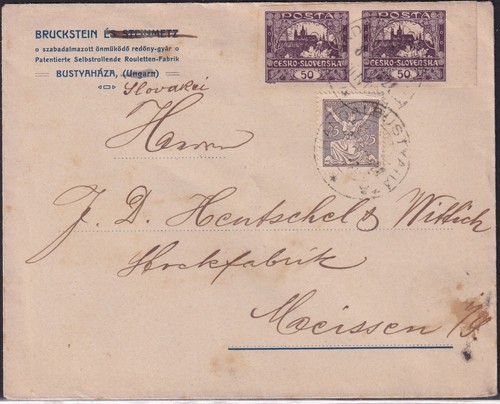 BRUCKSTEIN ÉS STEINMETZ
o szabadalmazott önmüködő redőny-gyár o
Patentierte Selbstrollende Rouletten-Fabrik
BUSTYAHÁZA, (Ungarn)
Slovakei
POSTA
50 ČESKO-SLOVENSKÁ 50
POSTA
50 ČESKO-SLOVENSKÁ 50
25
BUSTYAHÁZA
Herrn
J. D. Hentschel & Wittich
Stockfabrik
Meissen